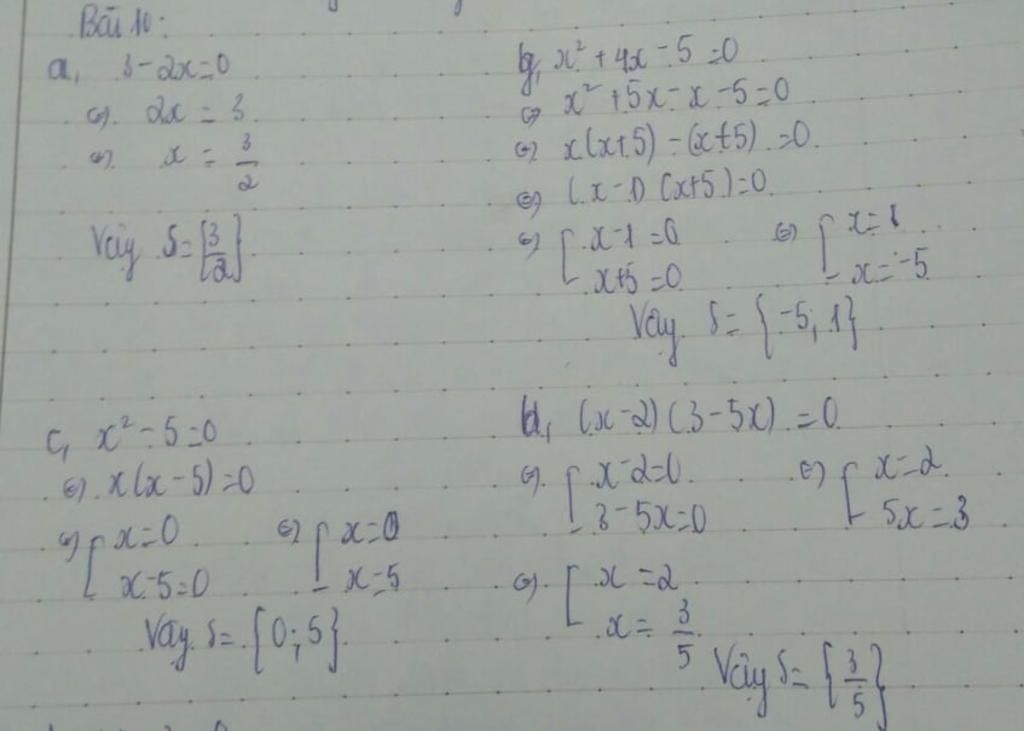 Bài 10:
a, 3 - 2x = 0
⇔ 2x = 3
⇔ x = 3/2
Vậy S = {3/2}
b, x² + 4x - 5 = 0
⇔ x² + 5x - x - 5 = 0
⇔ x(x+5) - (x+5) = 0
⇔ (x-1)(x+5) = 0
⇔ [x-1=0 ⇔ [x=1
x+5=0 x=-5
Vậy S = {-5; 1}
c, x² - 5 = 0
⇔ x(x-5) = 0
⇔ [x=0 ⇔ [x=0
x-5=0 x=5
Vậy S = {0; 5}
d, (x-2)(3-5x) = 0
⇔ [x-2=0 ⇔ [x=2
3-5x=0 5x=3
⇔ [x=2
x=3/5
Vậy S = {3/5}